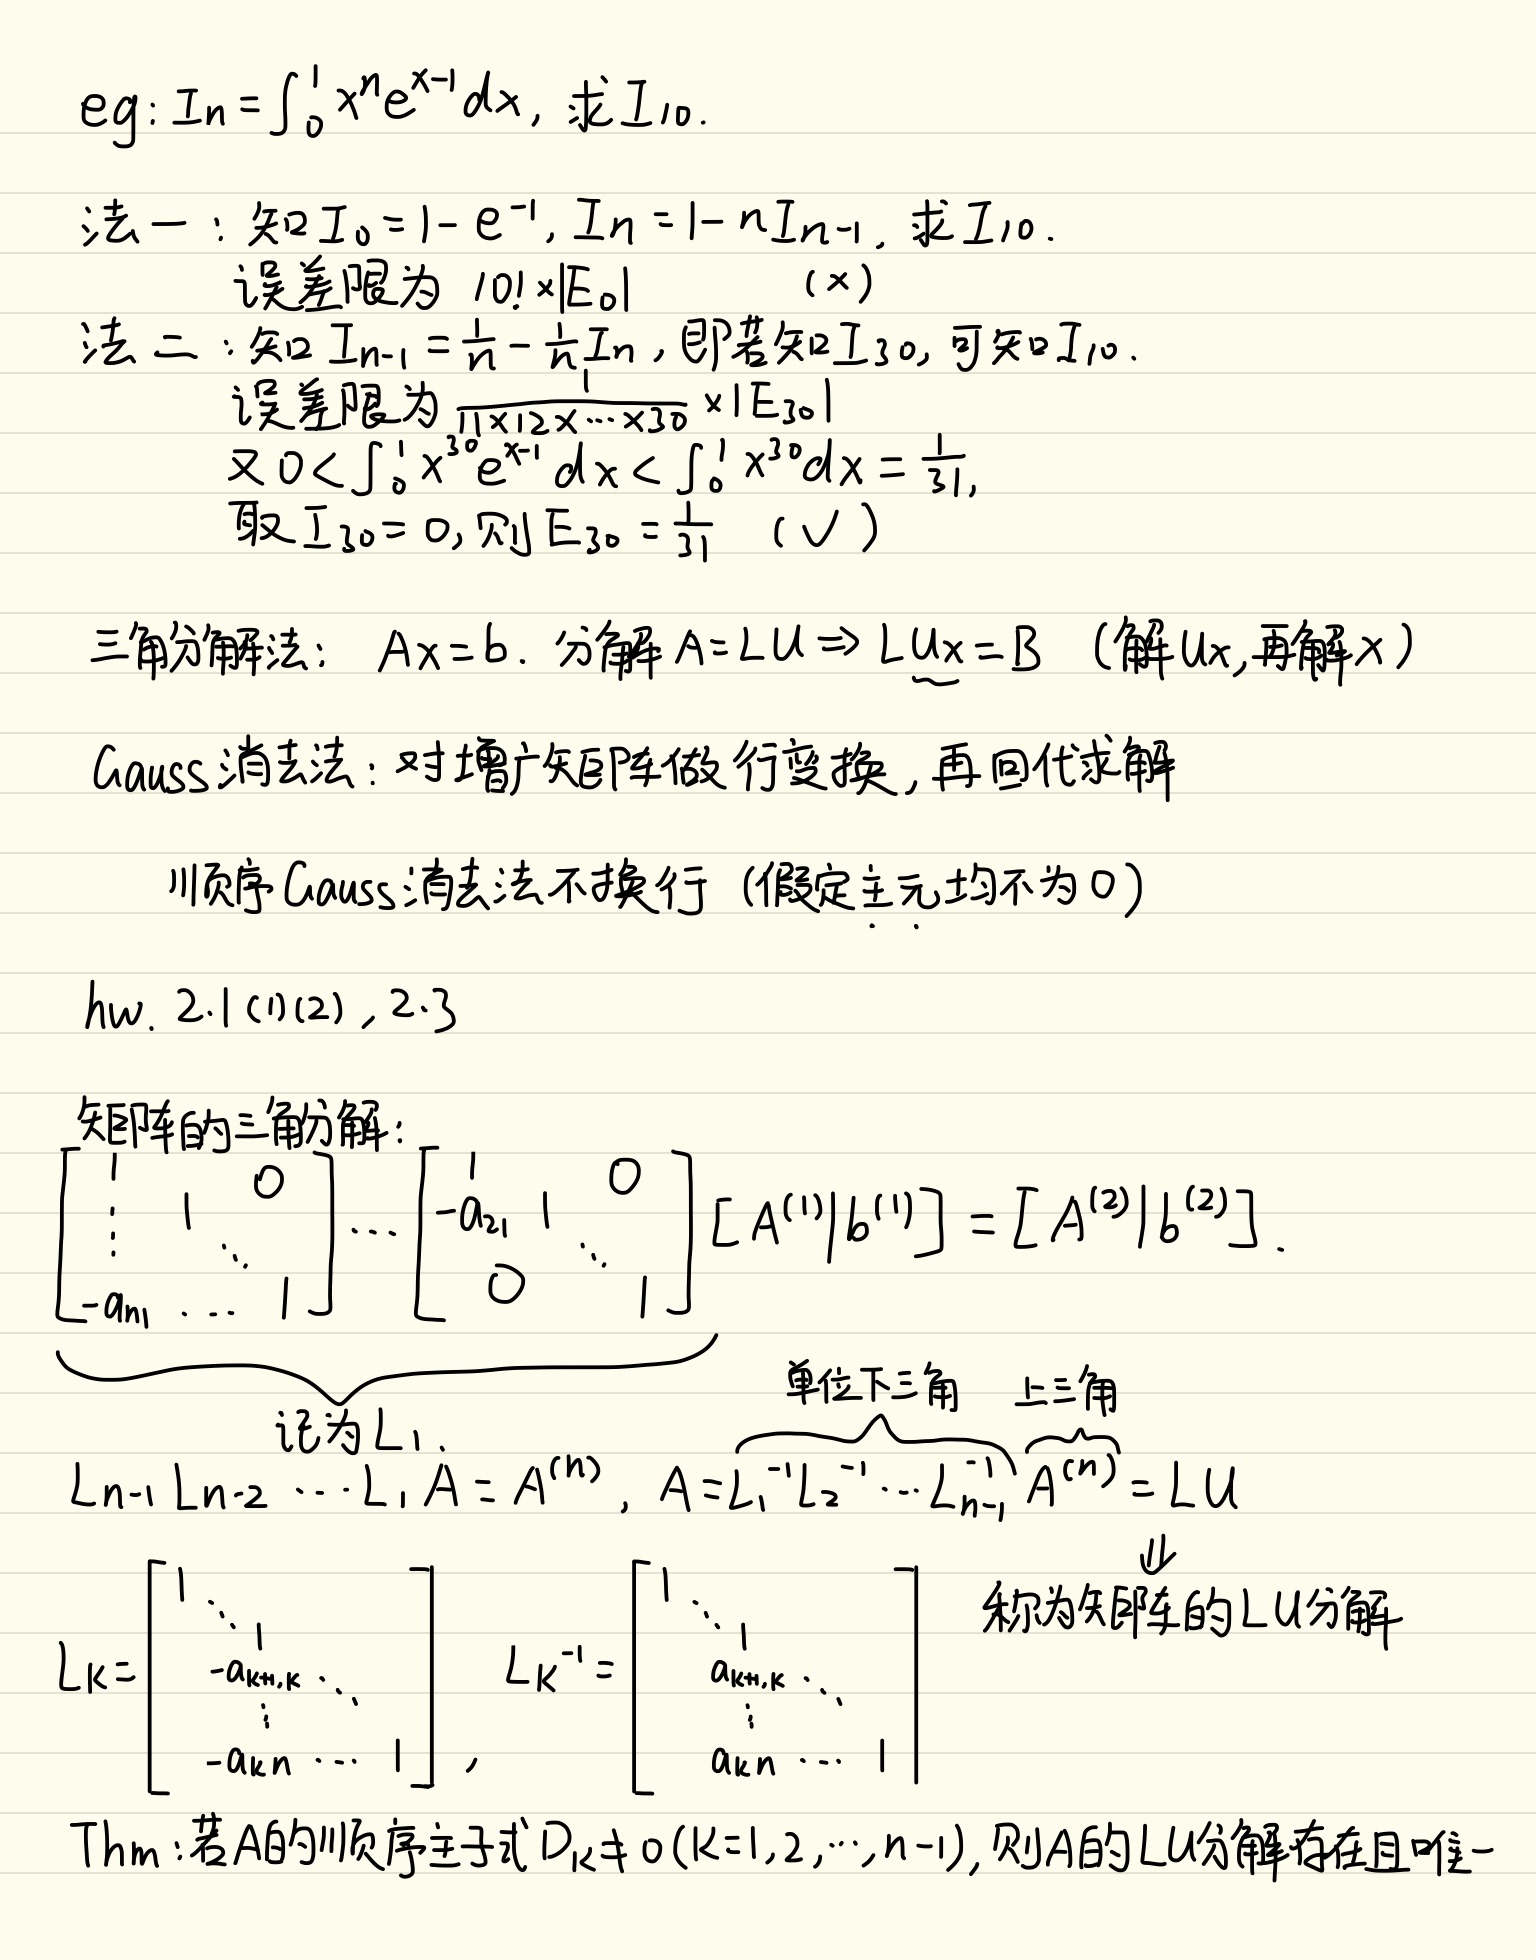 eg: Iₙ = ∫₀¹ xⁿeˣ⁻¹dx, 求I₁₀.
法一: 知I₀ = 1 - e⁻¹, Iₙ = 1 - nIₙ₋₁, 求I₁₀.
误差限为 10! × |E₀| (×)
法二: 知 Iₙ₋₁ = 1/n - 1/n Iₙ, 即若知I₃₀, 可知I₁₀.
误差限为 1/(11×12×…×30) × |E₃₀|
又 0 < ∫₀¹ x³⁰eˣ⁻¹dx < ∫₀¹ x³⁰dx = 1/31,
取I₃₀ = 0, 则E₃₀ = 1/31 (✓)
三角分解法: Ax = b. 分解 A = LU ⇒ LUx = B (解Ux, 再解x)
Gauss消去法: 对增广矩阵做行变换, 再回代求解
顺序Gauss消去法不换行 (假定主元均不为0)
hw. 2.1(1)(2), 2.3
矩阵的三角分解:
[1 0; ⋮ 1 ⋱; -aₙ₁ … 1] … [1 0; -a₂₁ 1 ⋱; 0 1] [A⁽¹⁾|b⁽¹⁾] = [A⁽²⁾|b⁽²⁾].
记为L₁.
单位下三角 上三角
Lₙ₋₁Lₙ₋₂ … L₁A = A⁽ⁿ⁾, A = L₁⁻¹L₂⁻¹ … Lₙ₋₁⁻¹ A⁽ⁿ⁾ = LU
⇓
称为矩阵的LU分解
L_K = [1 ⋱ 1; -a_{K+1,K} ⋱; ⋮; -a_{Kn} … 1], L_K⁻¹ = [1 ⋱ 1; a_{K+1,K} ⋱; ⋮; a_{Kn} … 1]
Thm: 若A的顺序主子式D_K ≠ 0 (K=1,2,…,n-1), 则A的LU分解存在且唯一